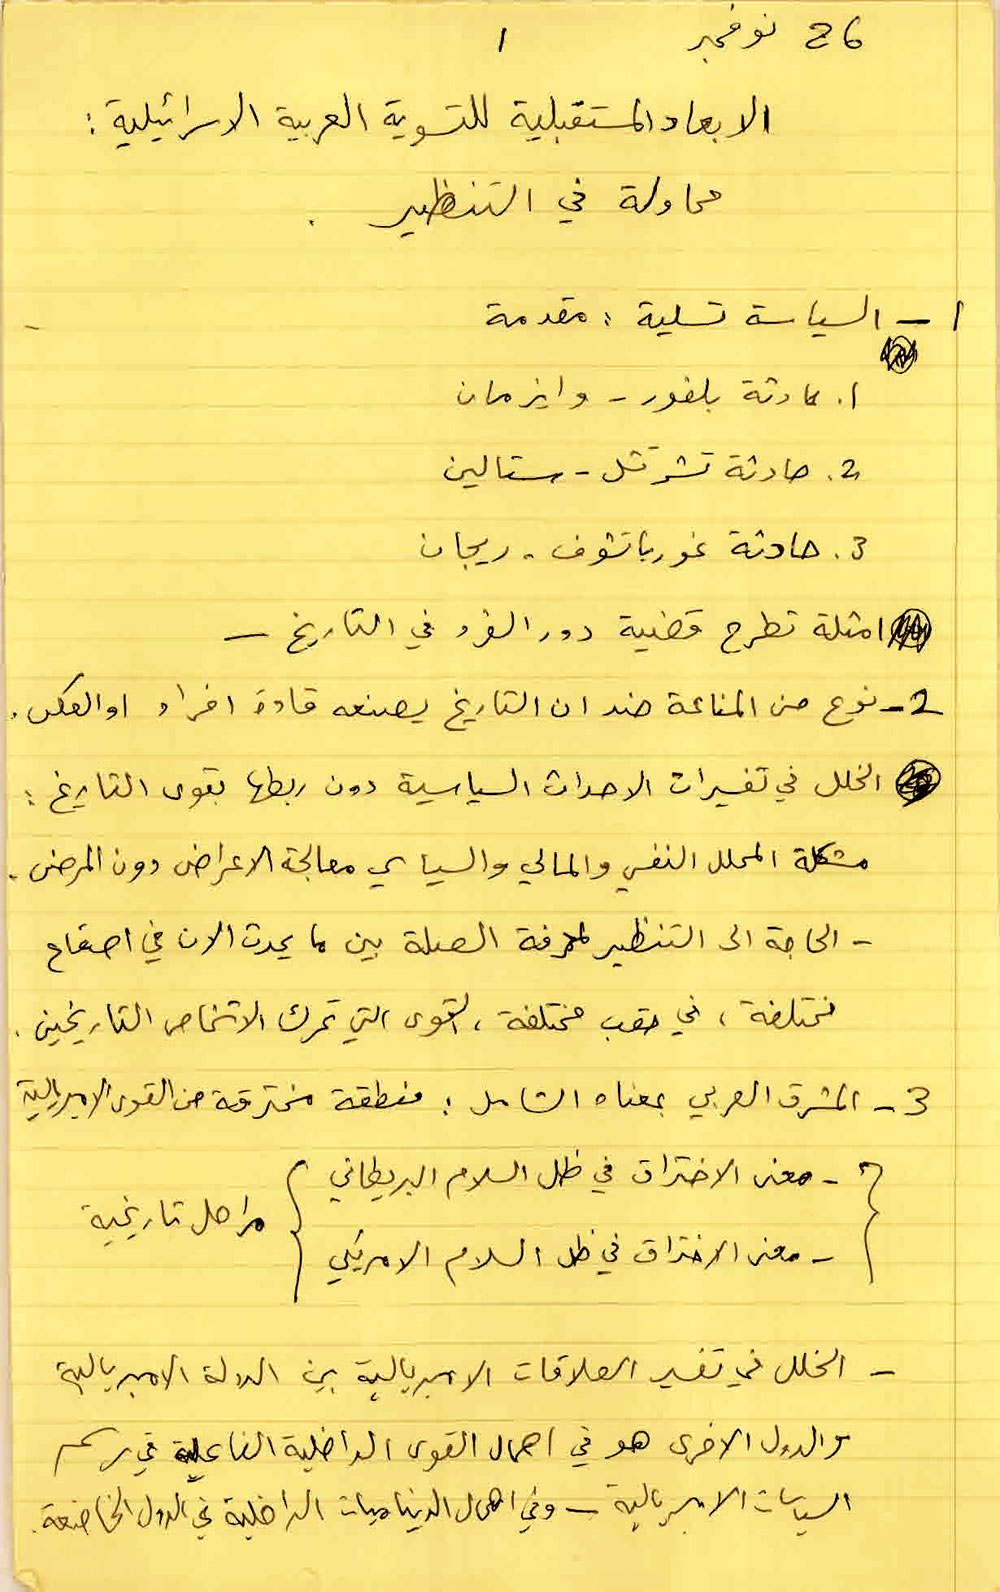 26 نوفمبر
1
الابعاد المستقبلية للتسوية العربية الاسرائيلية :
محاولة في التنظير .
1 - السياسة تسلية : مقدمة
1. حادثة بلفور - وايزمان
2. حادثة تشرتشل - ستالين
3. حادثة غورباتشوف - ريجان
امثلة تطرح قضية دور الفرد في التاريخ -
2 - نوع من المناعة ضد ان التاريخ يصنعه قادة افراد او العكس .
الخلل في تفسيرات الاحداث السياسية دون ربطها بقوى التاريخ :
مشكلة المحلل النفسي والمالي والسياسي معالجة الاعراض دون المرض .
- الحاجة الى التنظير لمعرفة الصلة بين ما يحدث الان في اصقاع
مختلفة ، في حقب مختلفة ، القوى التي تحرك الاشخاص التاريخيين .
3 - المشرق العربي بمعناه الشامل : منطقة مخترقة من القوى الامبريالية
- معنى الاختراق في ظل السلام البريطاني
مراحل تاريخية
- معنى الاختراق في ظل السلام الامريكي
- الخلل في تفسير العلاقات الامبريالية بين الدولة الامبريالية
والدول الاخرى هو في اهمال القوى الداخلية الفاعلة في رسم
السياسات الامبريالية - وفي اهمال الديناميات الداخلية في الدول الخاضعة .